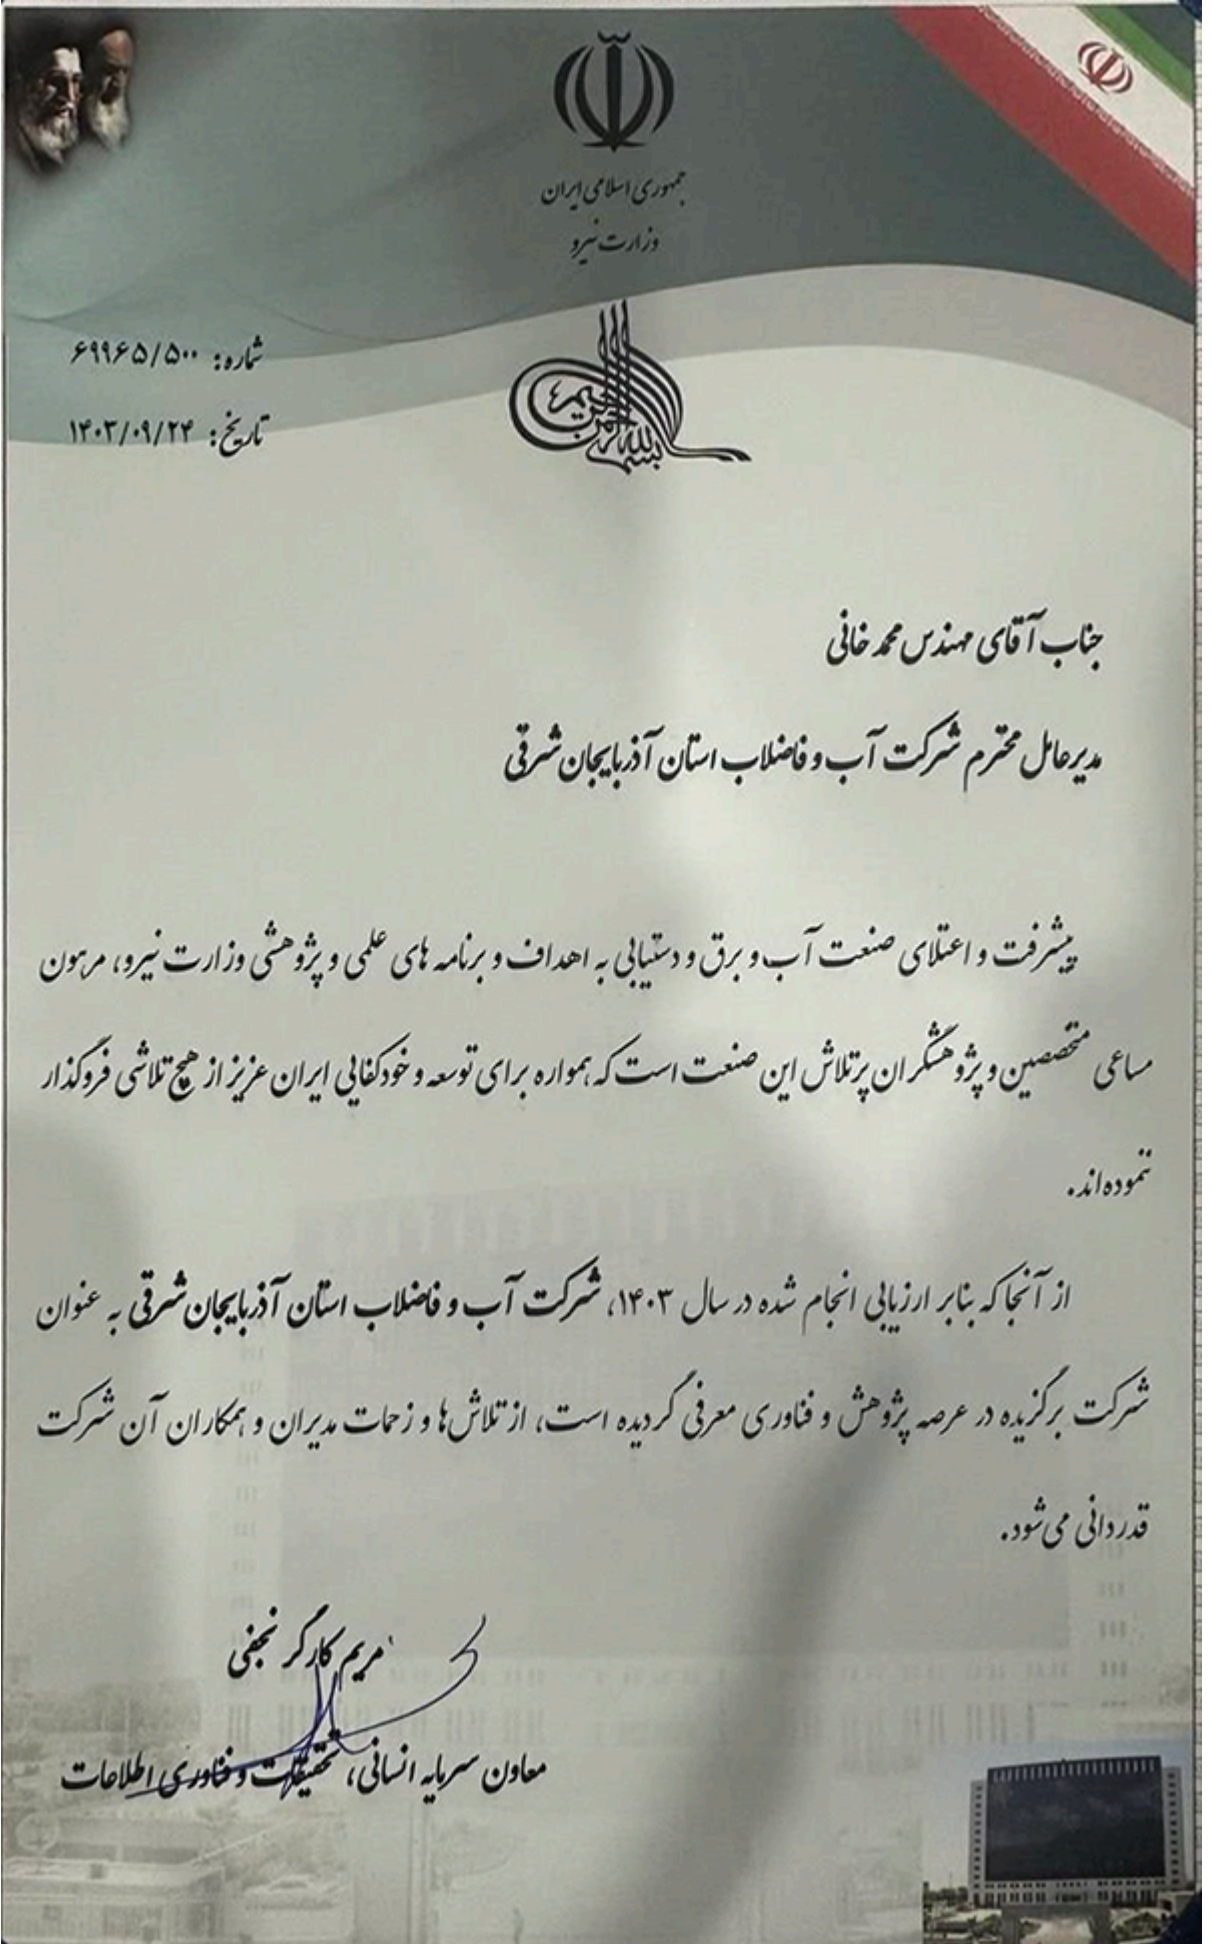 جمهوری اسلامی ایران
وزارت نیرو
بسم الله الرحمن الرحیم
شماره: ۶۹۹۶۵/۵۰۰
تاریخ: ۱۴۰۳/۰۹/۲۴
جناب آقای مهندس محمد خانی
مدیرعامل محترم شرکت آب و فاضلاب استان آذربایجان شرقی
پیشرفت و اعتلای صنعت آب و برق و دستیابی به اهداف و برنامه های علمی و پژوهشی وزارت نیرو، مرهون
مساعی متخصصین و پژوهشگران پرتلاش این صنعت است که همواره برای توسعه و خودکفایی ایران عزیز از هیچ تلاشی فروگذار
ننموده‌اند.
از آنجا که بنابر ارزیابی انجام شده در سال ۱۴۰۳، شرکت آب و فاضلاب استان آذربایجان شرقی به عنوان
شرکت برگزیده در عرصه پژوهش و فناوری معرفی گردیده است، از تلاش‌ها و زحمات مدیران و همکاران آن شرکت
قدردانی می‌شود.
مریم کارگر نجفی
معاون سرمایه انسانی، تحقیقات و فناوری اطلاعات